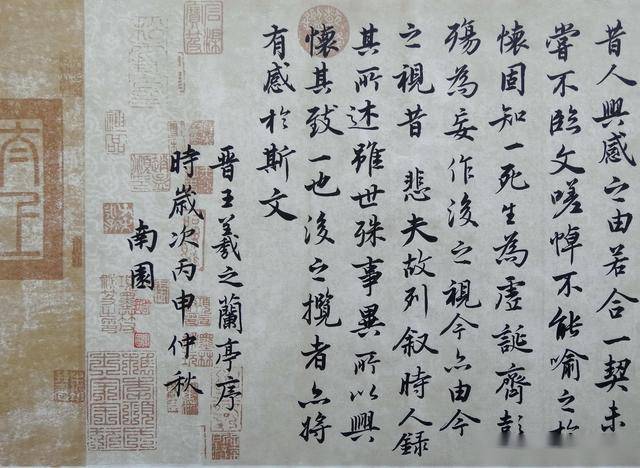 昔人興感之由若合一契未
嘗不臨文嗟悼不能喻之於
懷固知一死生為虛誕齊彭
殤為妄作後之視今亦由今
之視昔 悲夫故列叙時人錄
其所述雖世殊事異所以興
懷其致一也後之攬者亦將
有感於斯文
晉王羲之蘭亭序
時歲次丙申仲秋
南園